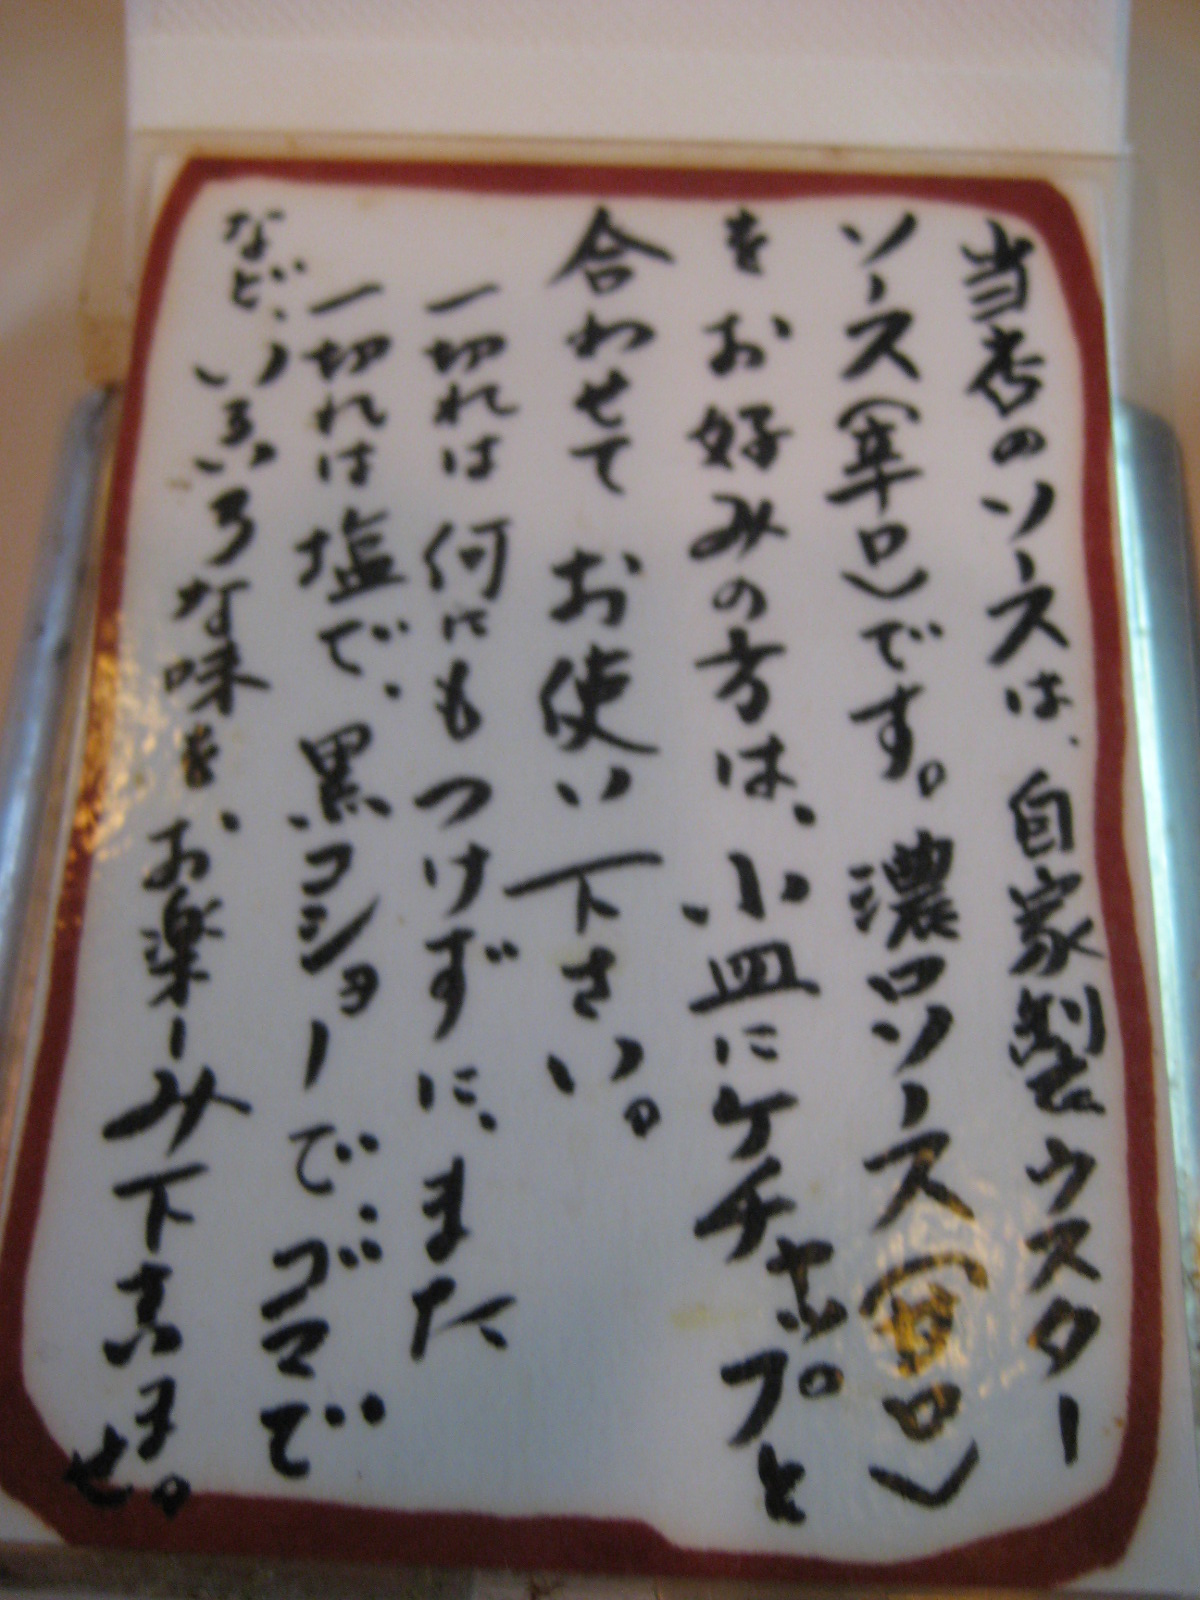 当店のソースは、自家製ウスター
ソース（辛口）です。濃口ソース（甘口）
をお好みの方は、小皿にケチャップと
合わせてお使い下さい。
一切れは何にもつけずに、また
一切れは塩で、黒コショーで、ゴマで
など、いろいろな味を、お楽しみ下さいませ。